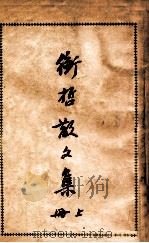 衡哲散文集
上册